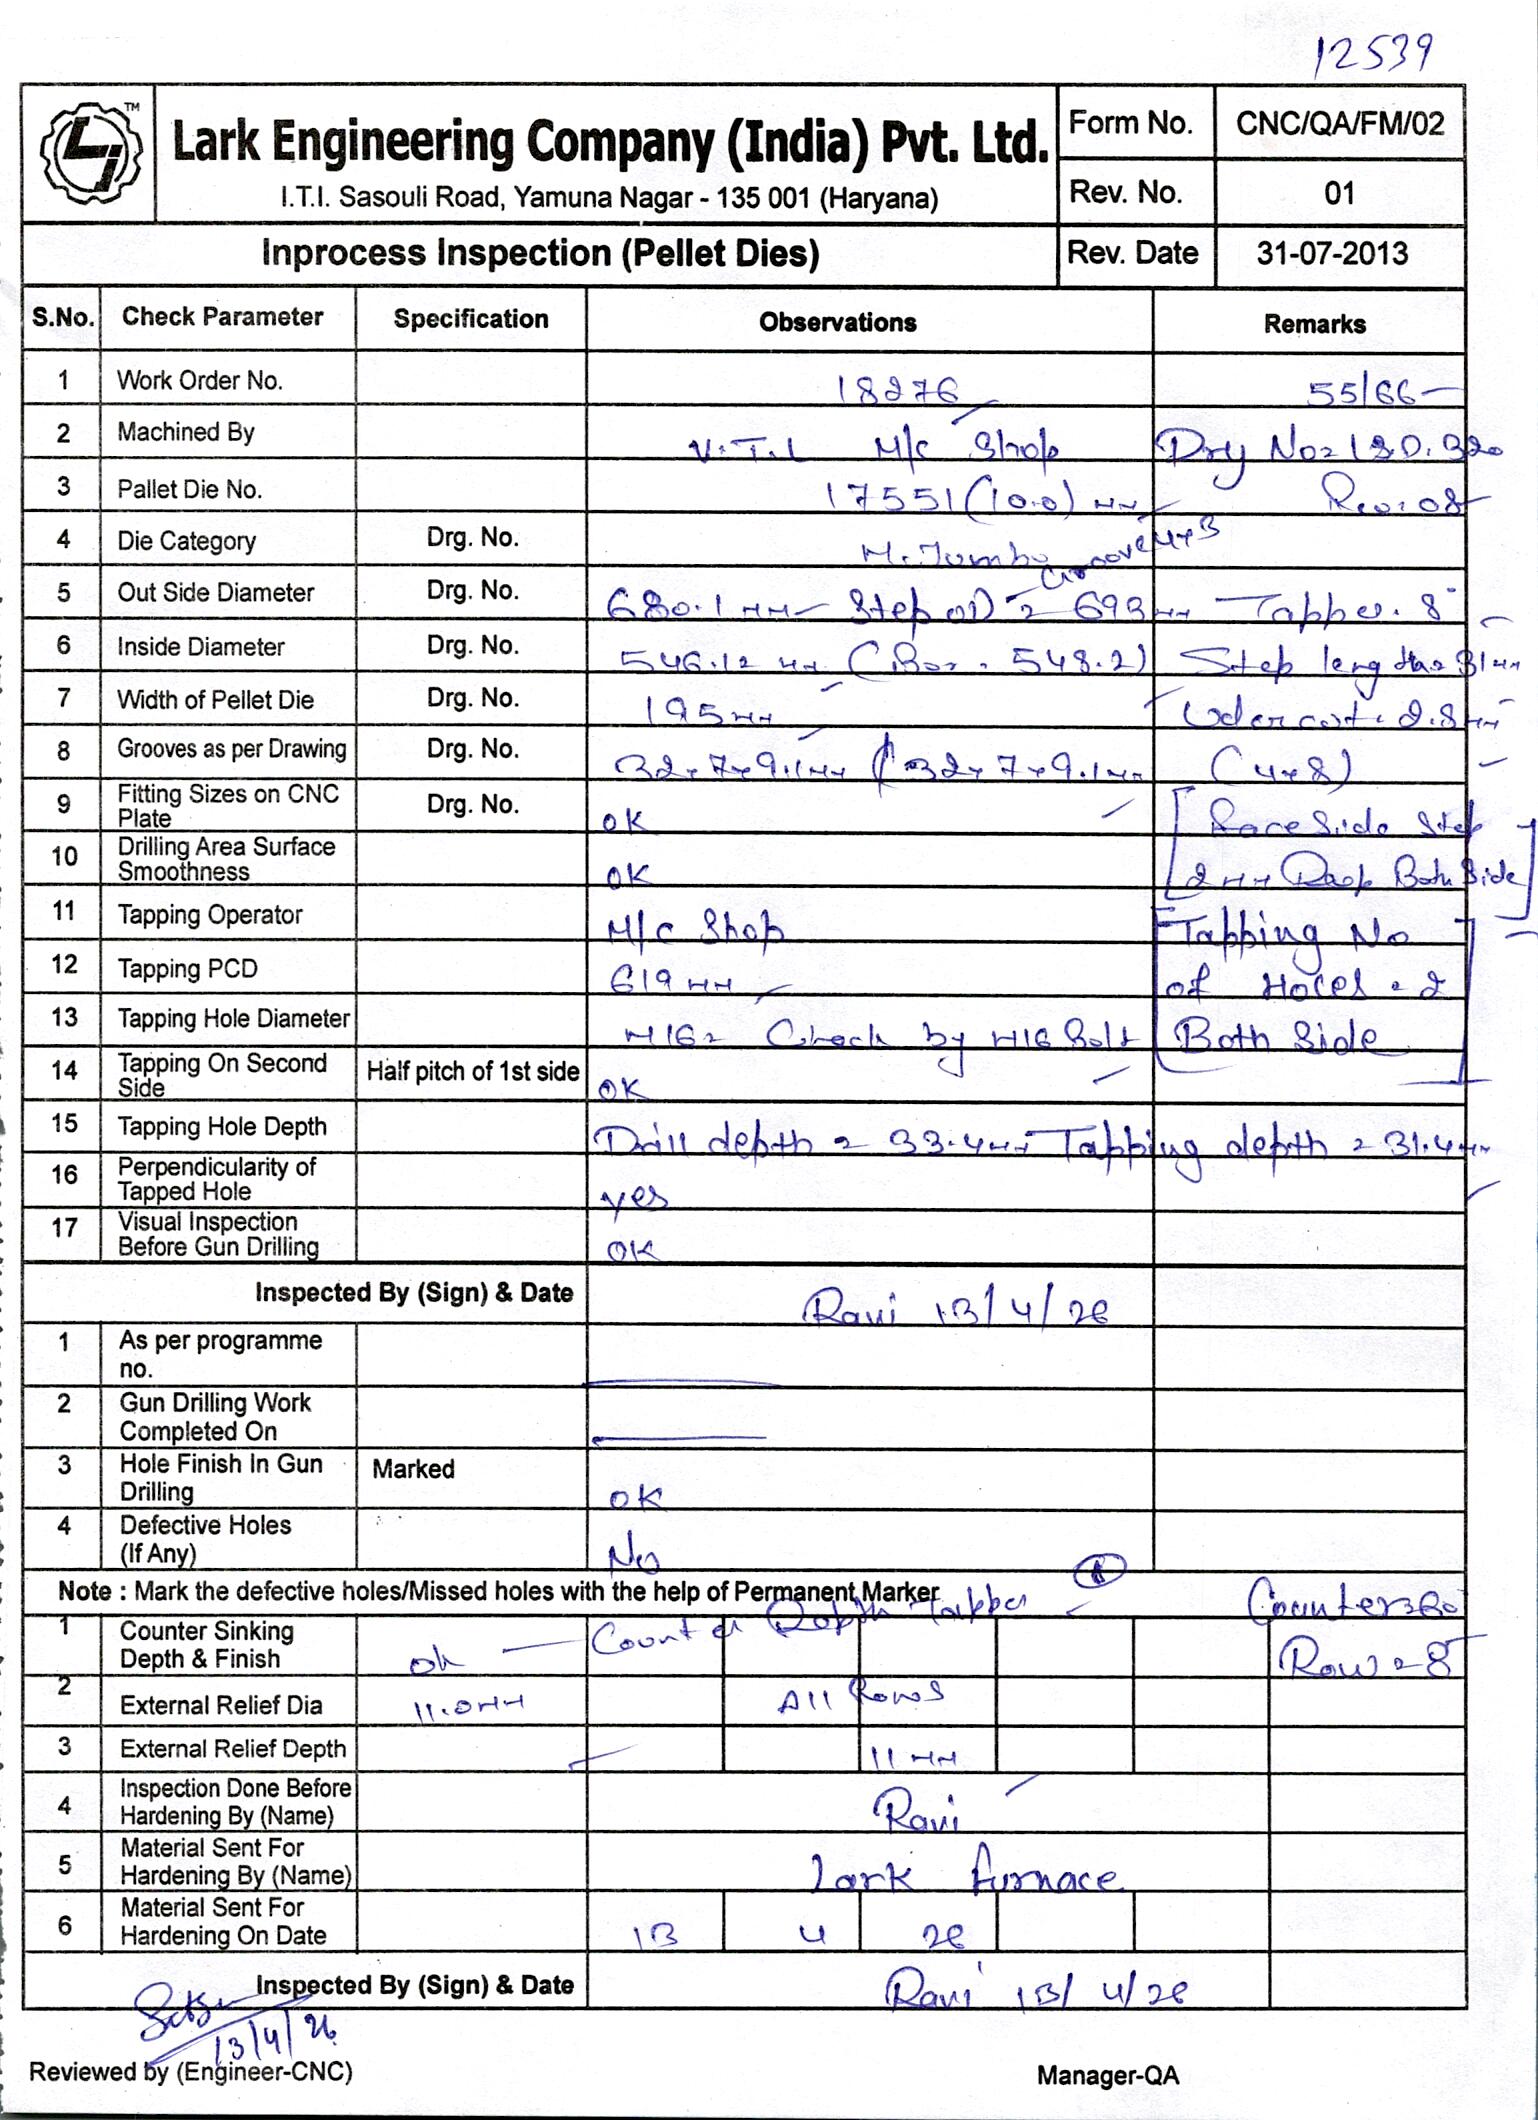 12539
Lark Engineering Company (India) Pvt. Ltd.
I.T.I. Sasouli Road, Yamuna Nagar - 135 001 (Haryana)
Form No. CNC/QA/FM/02
Rev. No. 01
Inprocess Inspection (Pellet Dies)
Rev. Date 31-07-2013
S.No. Check Parameter Specification Observations Remarks
1 Work Order No. 18276 55/66
2 Machined By V.T.L M/c Shop
3 Pallet Die No. 17551 (10.0) mm Rev: 08
4 Die Category Drg. No. M. Jumbo Groove 4x3
5 Out Side Diameter Drg. No. 680.1 mm Step OD = 693 mm Tapper. 8°
6 Inside Diameter Drg. No. 546.12 mm (Bor. 548.2) Step length = 31 mm
7 Width of Pellet Die Drg. No. 195 mm Undercut. 2.8 mm
8 Grooves as per Drawing Drg. No. 32x7x9.1 mm 32x7x9.1 mm (4x8)
9 Fitting Sizes on CNC Plate Drg. No. OK Side Step
10 Drilling Area Surface Smoothness OK 2 mm Deep Both Side
11 Tapping Operator M/c Shop Tapping No
12 Tapping PCD 619 mm of Holes = 2
13 Tapping Hole Diameter M16 = Check by M16 Bolt Both Side
14 Tapping On Second Side Half pitch of 1st side OK
15 Tapping Hole Depth Drill depth = 33.4 mm Tapping depth = 31.4 mm
16 Perpendicularity of Tapped Hole yes
17 Visual Inspection Before Gun Drilling OK
Inspected By (Sign) & Date Ravi 13/4/26
1 As per programme no.
2 Gun Drilling Work Completed On
3 Hole Finish In Gun Drilling Marked OK
4 Defective Holes (If Any) No
Note : Mark the defective holes/Missed holes with the help of Permanent Marker
1 Counter Sinking Depth & Finish Ok Counter Depth Tapper Row = 8
2 External Relief Dia 11.0 mm All Rows
3 External Relief Depth 11 mm
4 Inspection Done Before Hardening By (Name) Ravi
5 Material Sent For Hardening By (Name) Lark furnace
6 Material Sent For Hardening On Date 13 4 26
Inspected By (Sign) & Date Ravi 13/4/26
13/4/26
Reviewed by (Engineer-CNC) Manager-QA